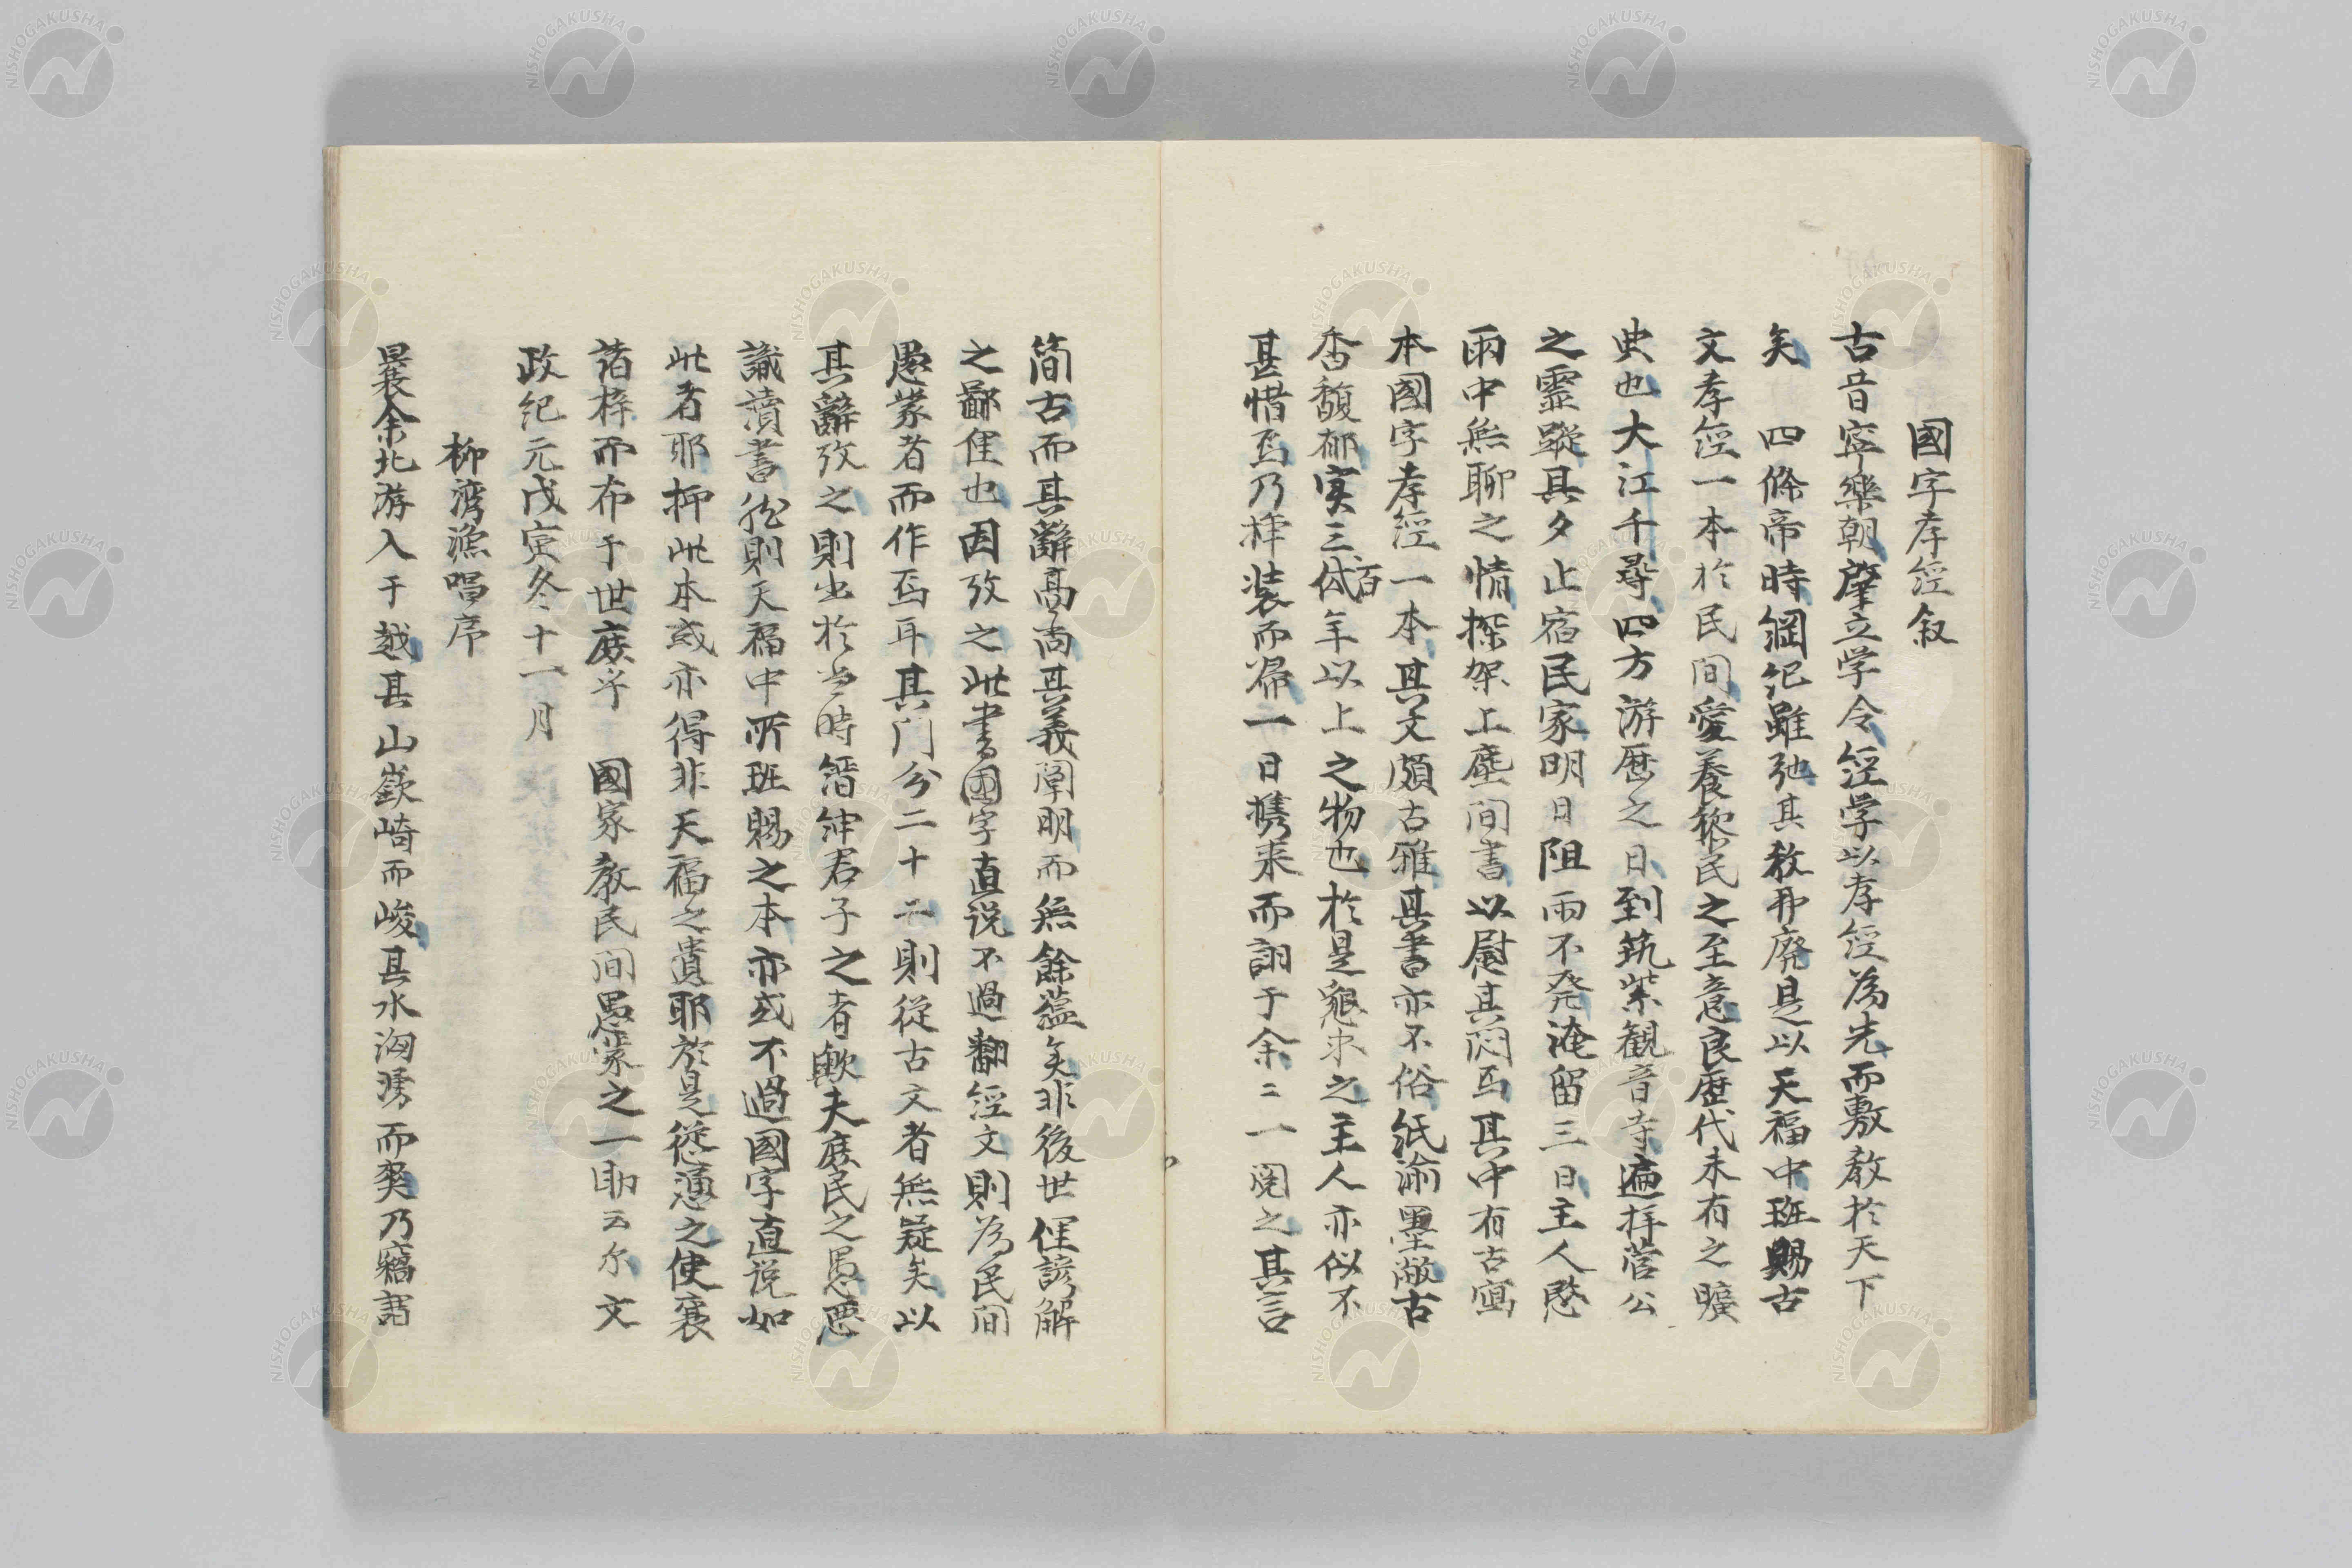 國字孝經叙
古昔寧樂朝肇立学令經学以孝經為先而敷教於天下
矣 四條帝時綱紀雖弛其教再廃是以天福中班賜古
文孝經一本於民間愛養黎民之至意良歴代未有之曠
典也大江千尋四方游歴之日到筑紫観音寺遍拝菅公
之靈蹤其夕止宿民家明日阻雨不発淹留三日主人愍
雨中無聊之情探架上塵間書以慰其悶焉其中有古寫
本國字孝經一本其文頗古雅其書亦不俗紙渝墨敝古
香馥郁実三四百年以上之物也於是懇求之主人亦似不
甚惜焉乃擇装而帰一日携来而詡于余二一閲之其言
簡古而其辭高尚其義闡明而無餘蘊矣非後世俚諺解
之鄙俚也因攷之此書國字直説不過翻經文則為民間
愚蒙者而作焉耳其門分二十二則従古文者無疑矣以
其辭攷之則出於當時縉紳君子之者歟夫庶民之愚悪
識讀書然則天福中所班賜之本亦或不過國字直説如
此者耶抑此本或亦得非天福之遺耶於是慫慂之使衰
諸梓而布于世庶乎 國家教民間愚蒙之一助云尓文
政紀元戊寅冬十一月
柳湾漁唱序
曩余北游入于越其山嶔崎而峻其水洶湧而奰乃竊謂
NISHOGAKUSHA